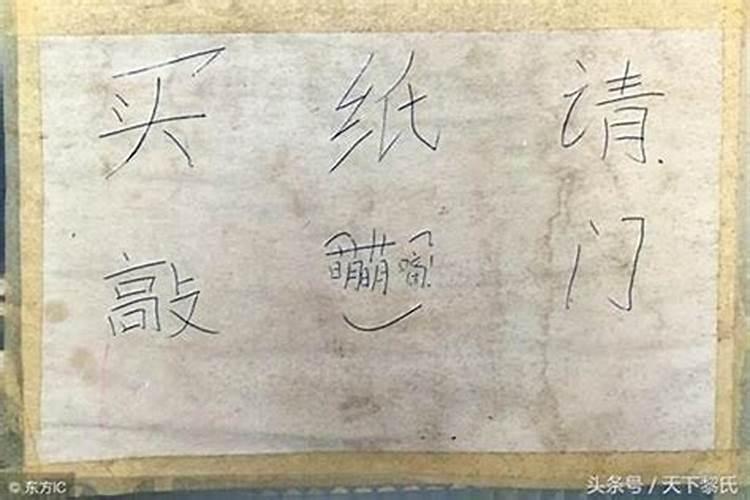 买 纸 请
敲 萌萌嘀! 门
© 东方IC
头条号 / 天下黎氏